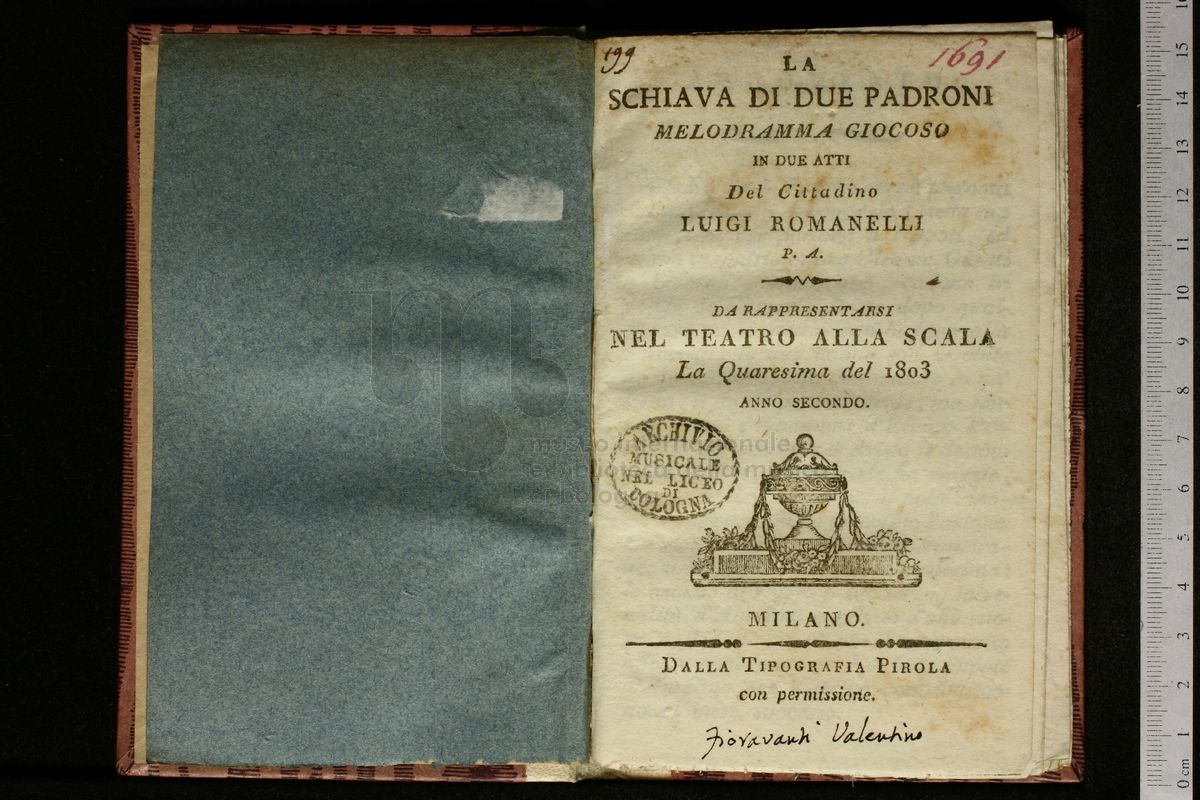 199
1691
LA
SCHIAVA DI DUE PADRONI
MELODRAMMA GIOCOSO
IN DUE ATTI
Del Cittadino
LUIGI ROMANELLI
P. A.
DA RAPPRESENTARSI
NEL TEATRO ALLA SCALA
La Quaresima del 1803
ANNO SECONDO.
ARCHIVIO
MUSICALE
NEL LICEO
DI
BOLOGNA
museo internazionale
e biblioteca della musica
di bologna
MILANO.
DALLA TIPOGRAFIA PIROLA
con permissione.
Fioravanti Valentino
15
14
13
12
11
10
9
8
7
6
5
4
3
2
1
0 cm